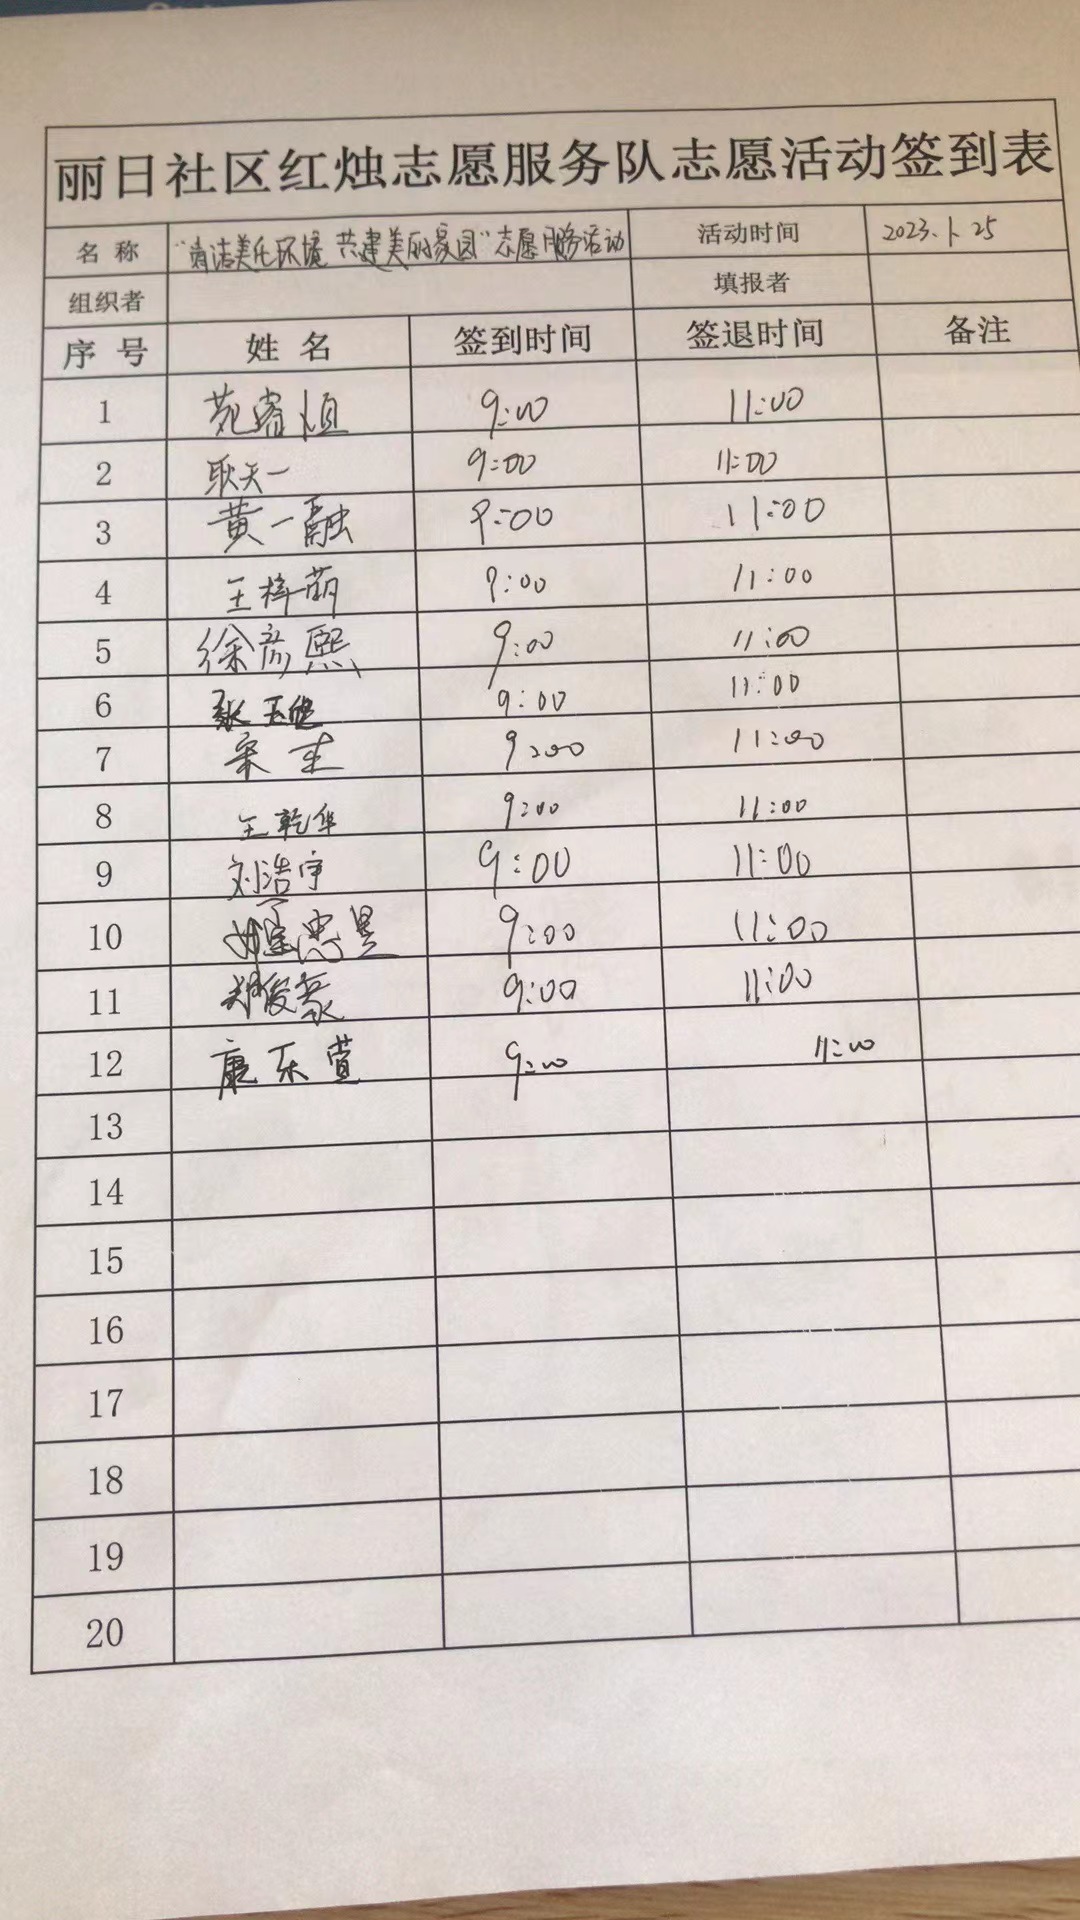 丽日社区红烛志愿服务队志愿活动签到表
名称 “清洁美化环境 共建美丽家园”志愿服务活动 活动时间 2023.1.25
组织者 填报者
序号 姓名 签到时间 签退时间 备注
1 苑睿恒 9:00 11:00
2 耿天一 9:00 11:00
3 黄一融 9:00 11:00
4 王梓萌 9:00 11:00
5 徐彦熙 9:00 11:00
6 9:00 11:00
7 9:00 11:00
8 王乾华 9:00 11:00
9 刘浩宇 9:00 11:00
10 9:00 11:00
11 郑俊豪 9:00 11:00
12 康乐萱 9:00 11:00
13
14
15
16
17
18
19
20